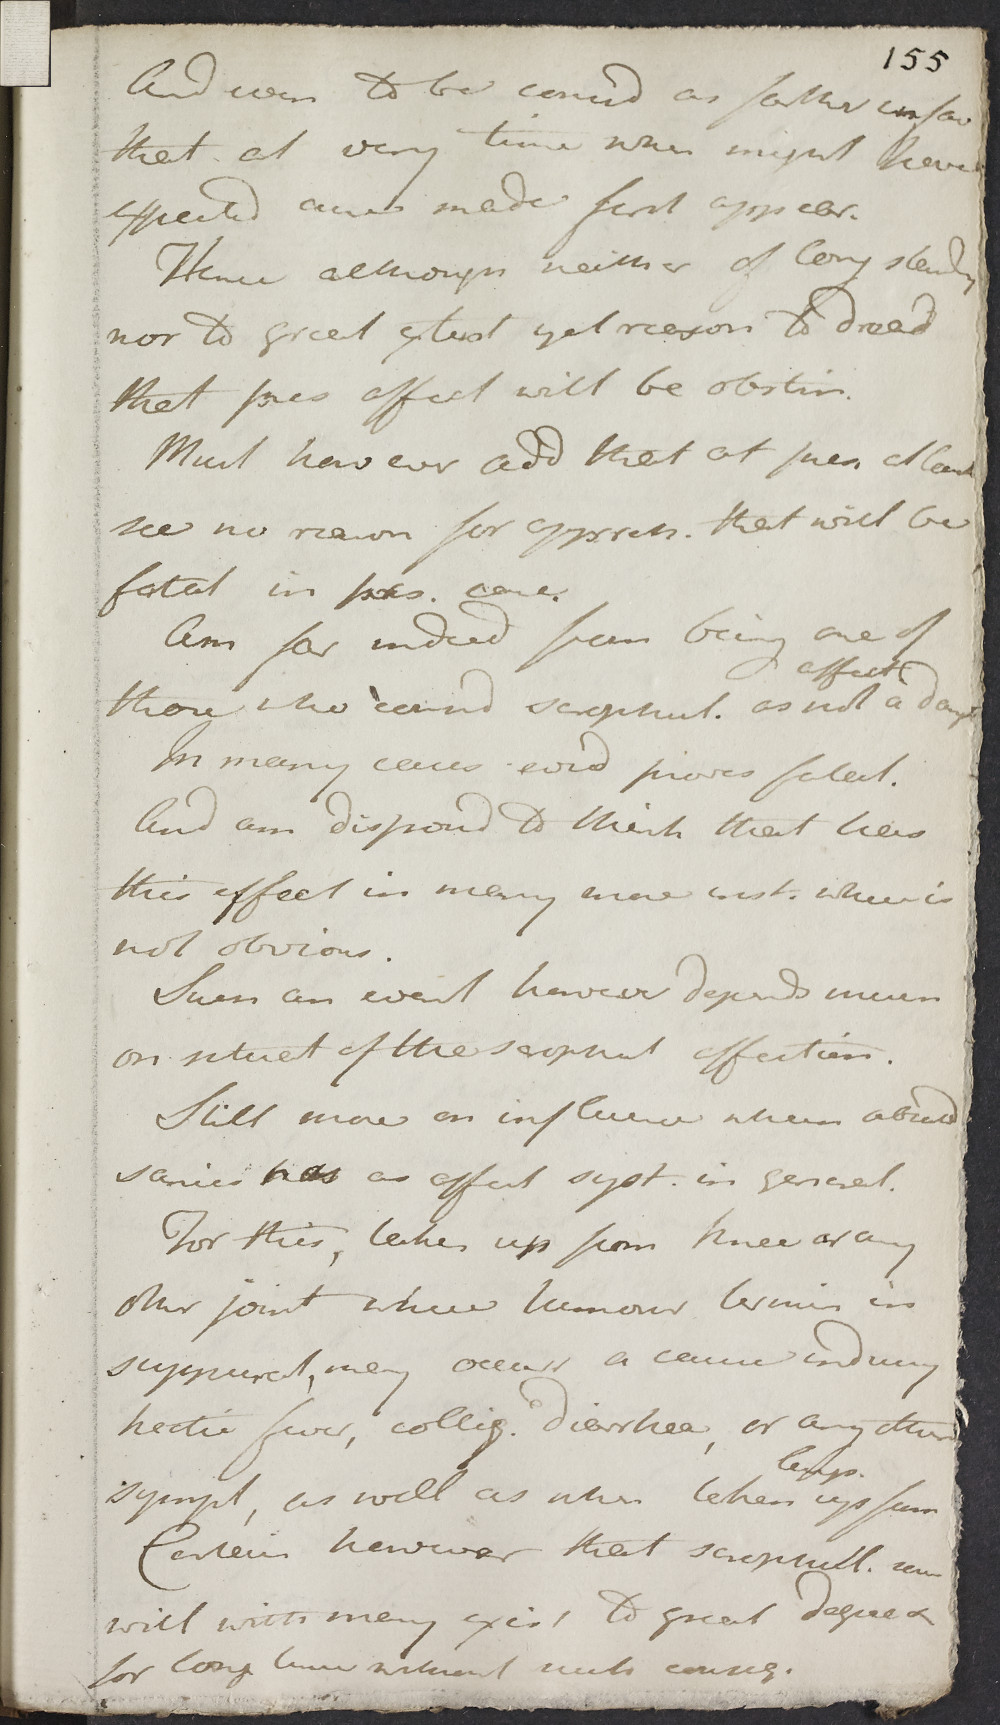 155
And even to be consid as farther unfav
that at very time when might have
expected cure made first appear.
Hence although neither of long standg
nor to great extent yet reason to dread
that pres affect will be obstin.
Must however add that at pres at least
see no reason for appreh. that will be
fatal in pres. case.
Am far indeed from being one of
those who consid scrophul. as not a dang
affect
In many cases evid proves fatal.
And am disposed to think that has
this effect in many more inst. where is
not obvious.
Such an event however depends much
on situat of the scrophul affection.
Still more on influence when absorbd
sanies has as affect syst. in general.
For this, taken up from knee or any
other joint where tumour termin in
suppurat, may occurr a cause inducing
hectic fever, colliq. diarrhea, or any other
sympt, as well as when taken up from
lungs.
Certain however that scrophul. tum
will with many exist to great degree &
for long time without such conseq.